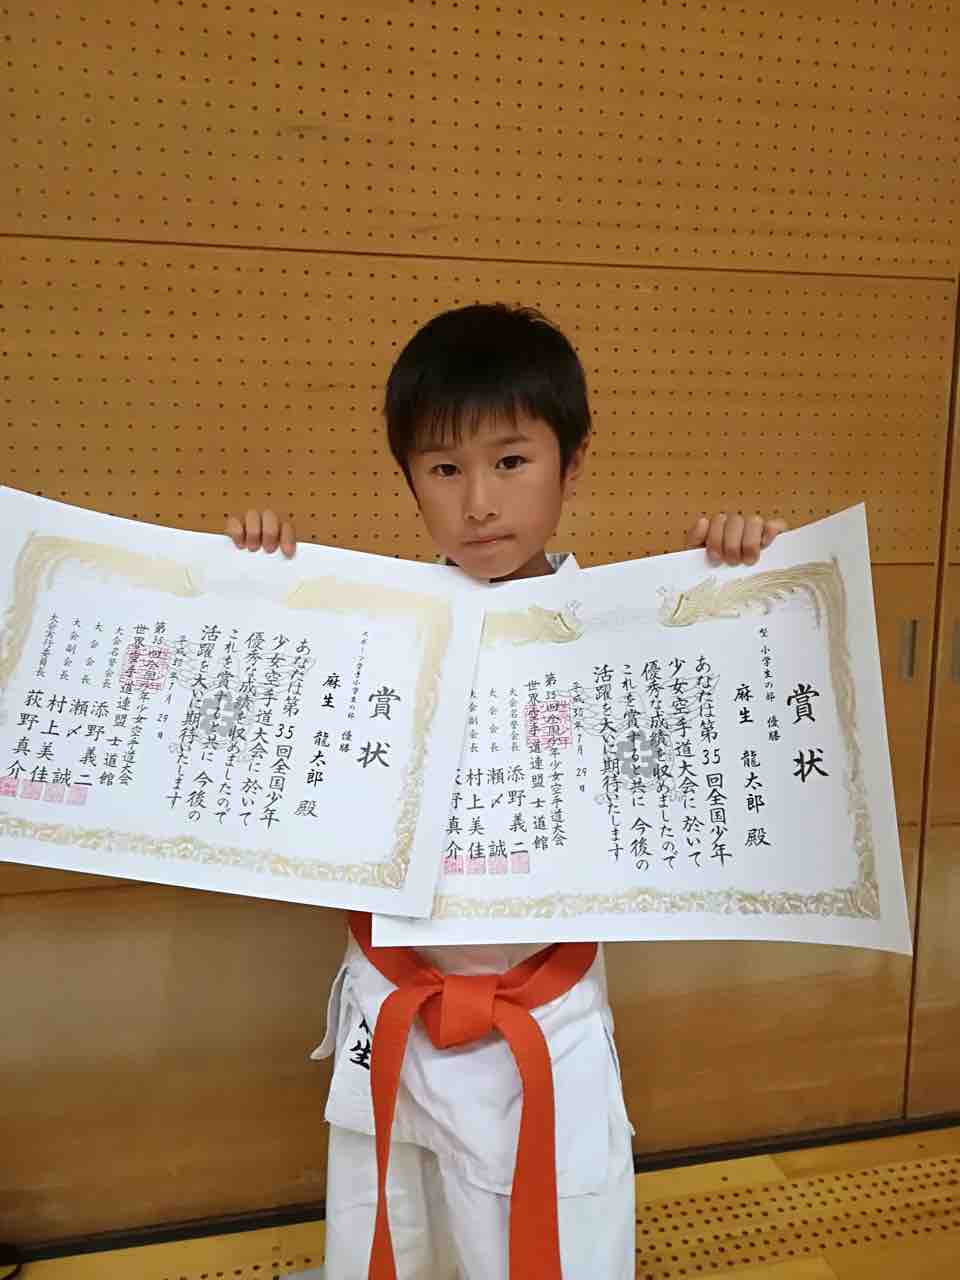 賞状
スポーツ空手小学生の部 優勝
麻生 龍太郎 殿
あなたは第35回全国少年
少女空手道大会に於いて
優秀な成績を収めましたので
これを賞すると共に今後の
活躍を大いに期待いたします
平成30年7月29日
第35回全国少年少女空手道大会
世界空手道連盟士道館
大会名誉会長 添野義二
大会会長 瀬〆誠
大会副会長 村上美佳
大会実行委員長 荻野真介
賞状
型 小学生の部 優勝
麻生 龍太郎 殿
あなたは第35回全国少年
少女空手道大会に於いて
優秀な成績を収めましたので
これを賞すると共に今後の
活躍を大いに期待いたします
平成30年7月29日
第35回全国少年少女空手道大会
世界空手道連盟士道館
大会名誉会長 添野義二
大会会長 瀬〆誠
大会副会長 村上美佳
野真介
生